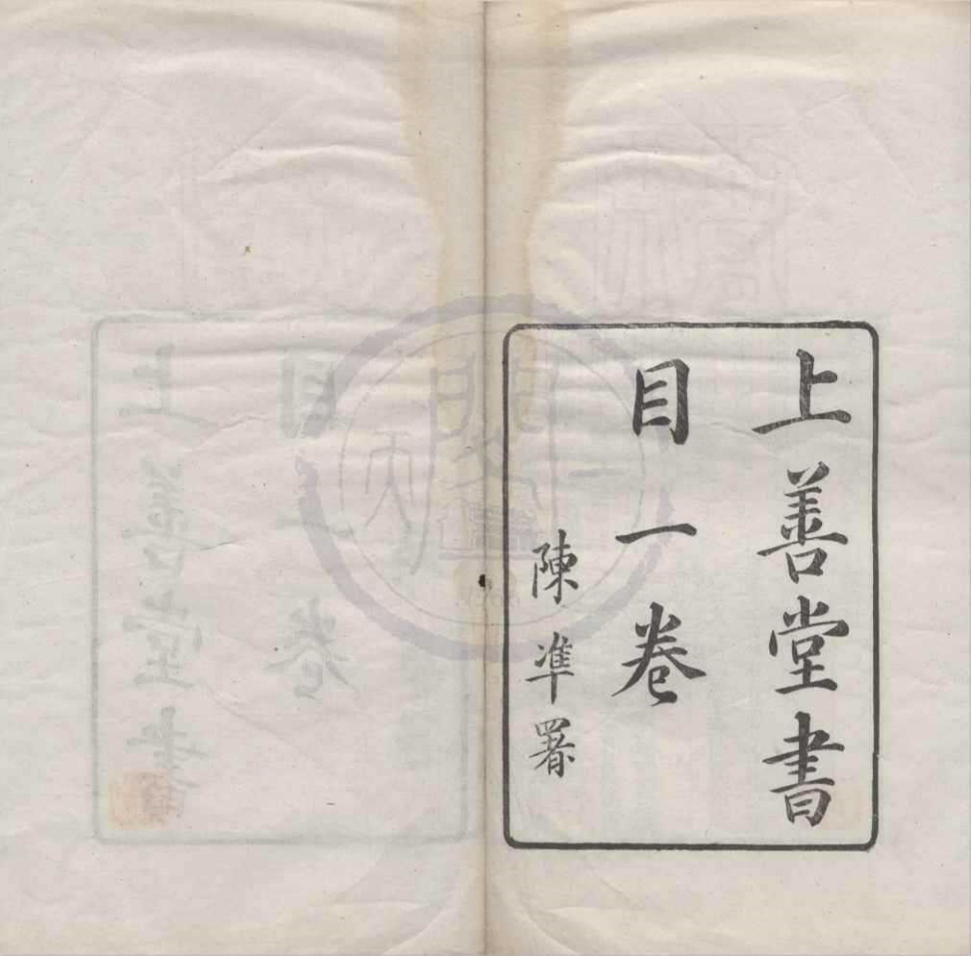 上善堂書
目一卷
陳準署